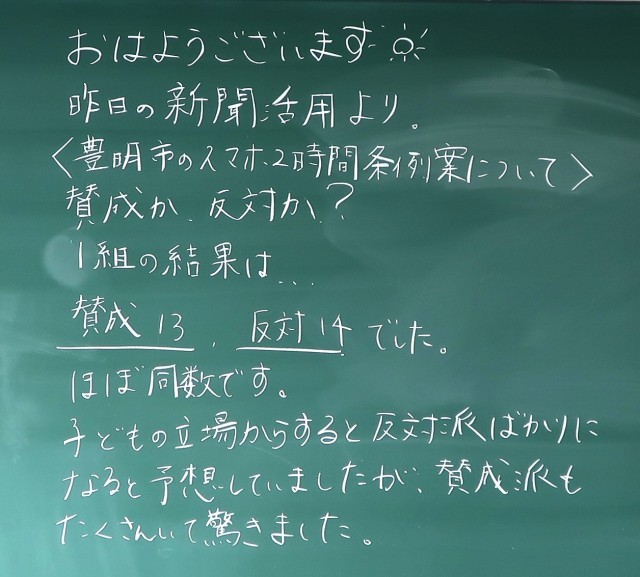 おはようございます
昨日の新聞活用より。
〈豊明市のスマホ2時間条例案について〉
賛成か、反対か？
1組の結果は...
賛成13、反対14でした。
ほぼ同数です。
子どもの立場からすると反対派ばかりに
なると予想していましたが、賛成派も
たくさんいて驚きました。